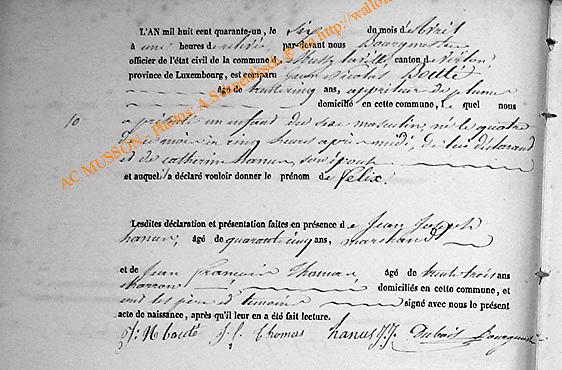 L'AN mil huit cent quarante-un, le Six du mois d'Avril
à une heures de relevée, par-devant nous Bourgmestre
officier de l'état civil de la commune de canton de Virton,
province de Luxembourg, est comparu Jean Nicolas Bouté
âgé de trente cinq ans, apprêteur de plumes
domicilié en cette commune, Le quel nous
10 a présenté un enfant du sexe masculin, né le quatre
de ce mois à cinq heures après midi, de lui déclarant
et de Catherine Hanus, son épouse
et auquel il a déclaré vouloir donner le prénom de Félix.
Lesdites déclaration et présentation faites en présence de Jean Joseph
hanus, âgé de quarante cinq ans, marchand
et de Jean françois Thomas âgé de trente trois ans
charron domiciliés en cette commune, et
ont les père et témoins signé avec nous le présent
acte de naissance, après qu'il leur en a été fait lecture.
J: N bouté J. f. Thomas hanus J.J. Bourgmestre
AC MUSSON; Photos: A Schneider; © sa http://wallo